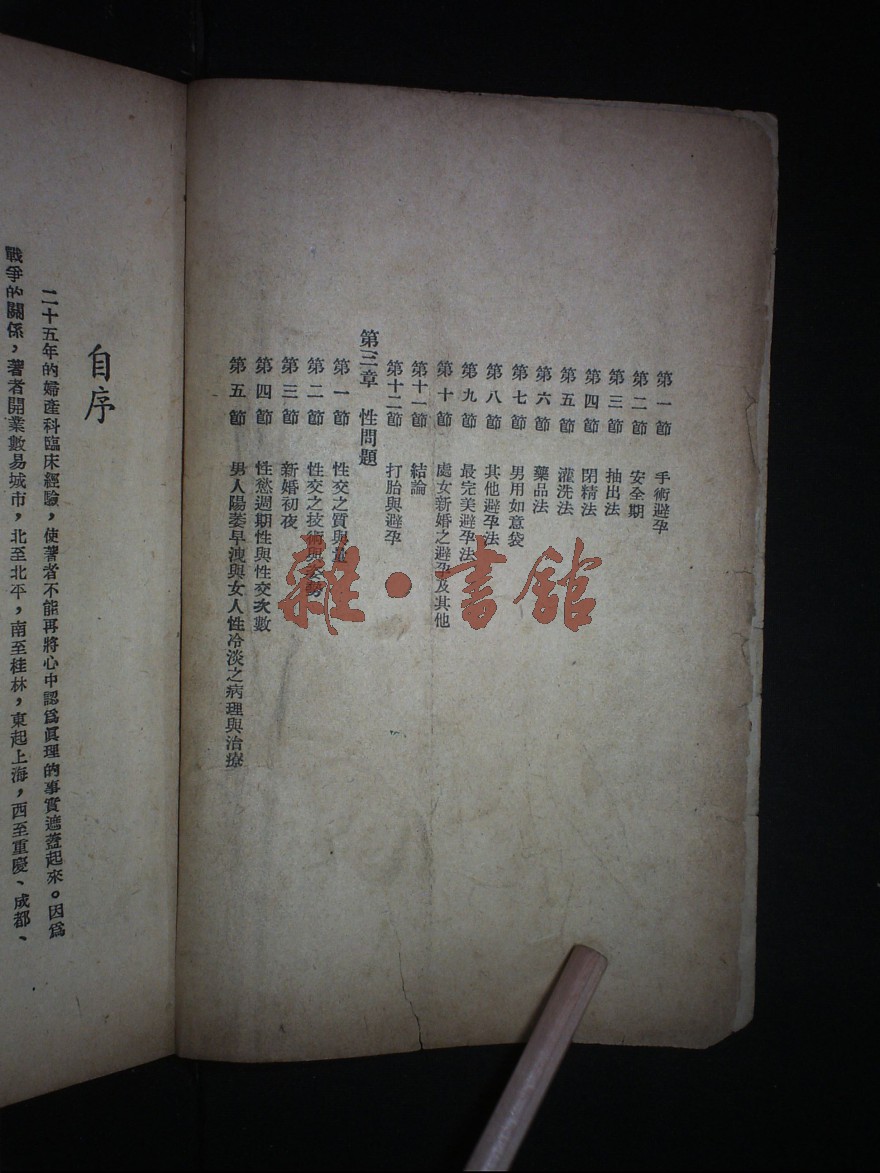 第一節 手術避孕
第二節 安全期
第三節 抽出法
第四節 閉精法
第五節 灌洗法
第六節 藥品法
第七節 男用如意袋
第八節 其他避孕法
第九節 最完美避孕法
第十節 處女新婚之避孕及其他
第十一節 結論
第十二節 打胎與避孕
第三章 性問題
第一節 性交之質與量
第二節 性交之技術與姿勢
第三節 新婚初夜
第四節 性慾週期性與性交次數
第五節 男人陽萎早洩與女人性冷淡之病理與治療
雜·書館
自序
二十五年的婦產科臨床經驗，使著者不能再將心中認爲眞理的事實遮蓋起來。因爲
戰爭的關係，著者開業數易城市，北至北平，南至桂林，東起上海，西至重慶、成都、